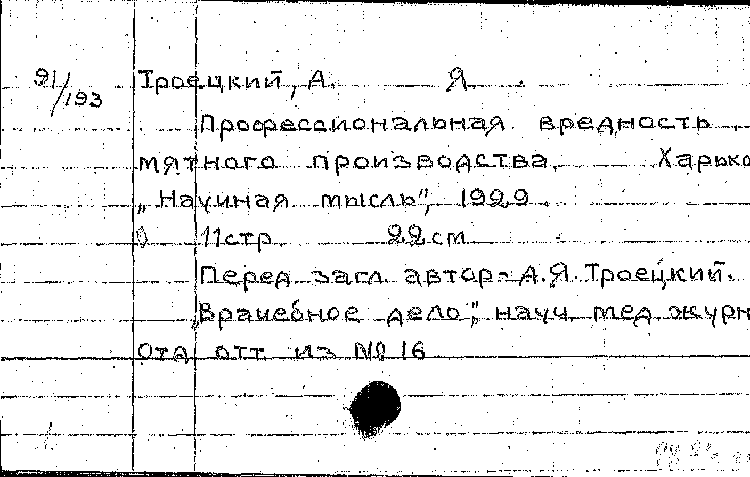 91/193
Троецкий, А. Я.
Профессиональная вредность
мятного производства. Харько
„Научная мысль", 1929.
11стр 22см
Перед загл. автор- А.Я.Троецкий.
„Врачебное дело", науч. мед журн
Отд отт из № 16